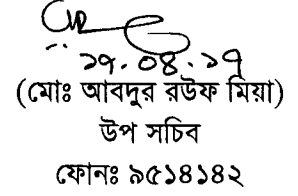 ১৭.০৪.১৭
(মোঃ আবদুর রউফ মিয়া)
উপ সচিব
ফোনঃ ৯৫১৪১৪২